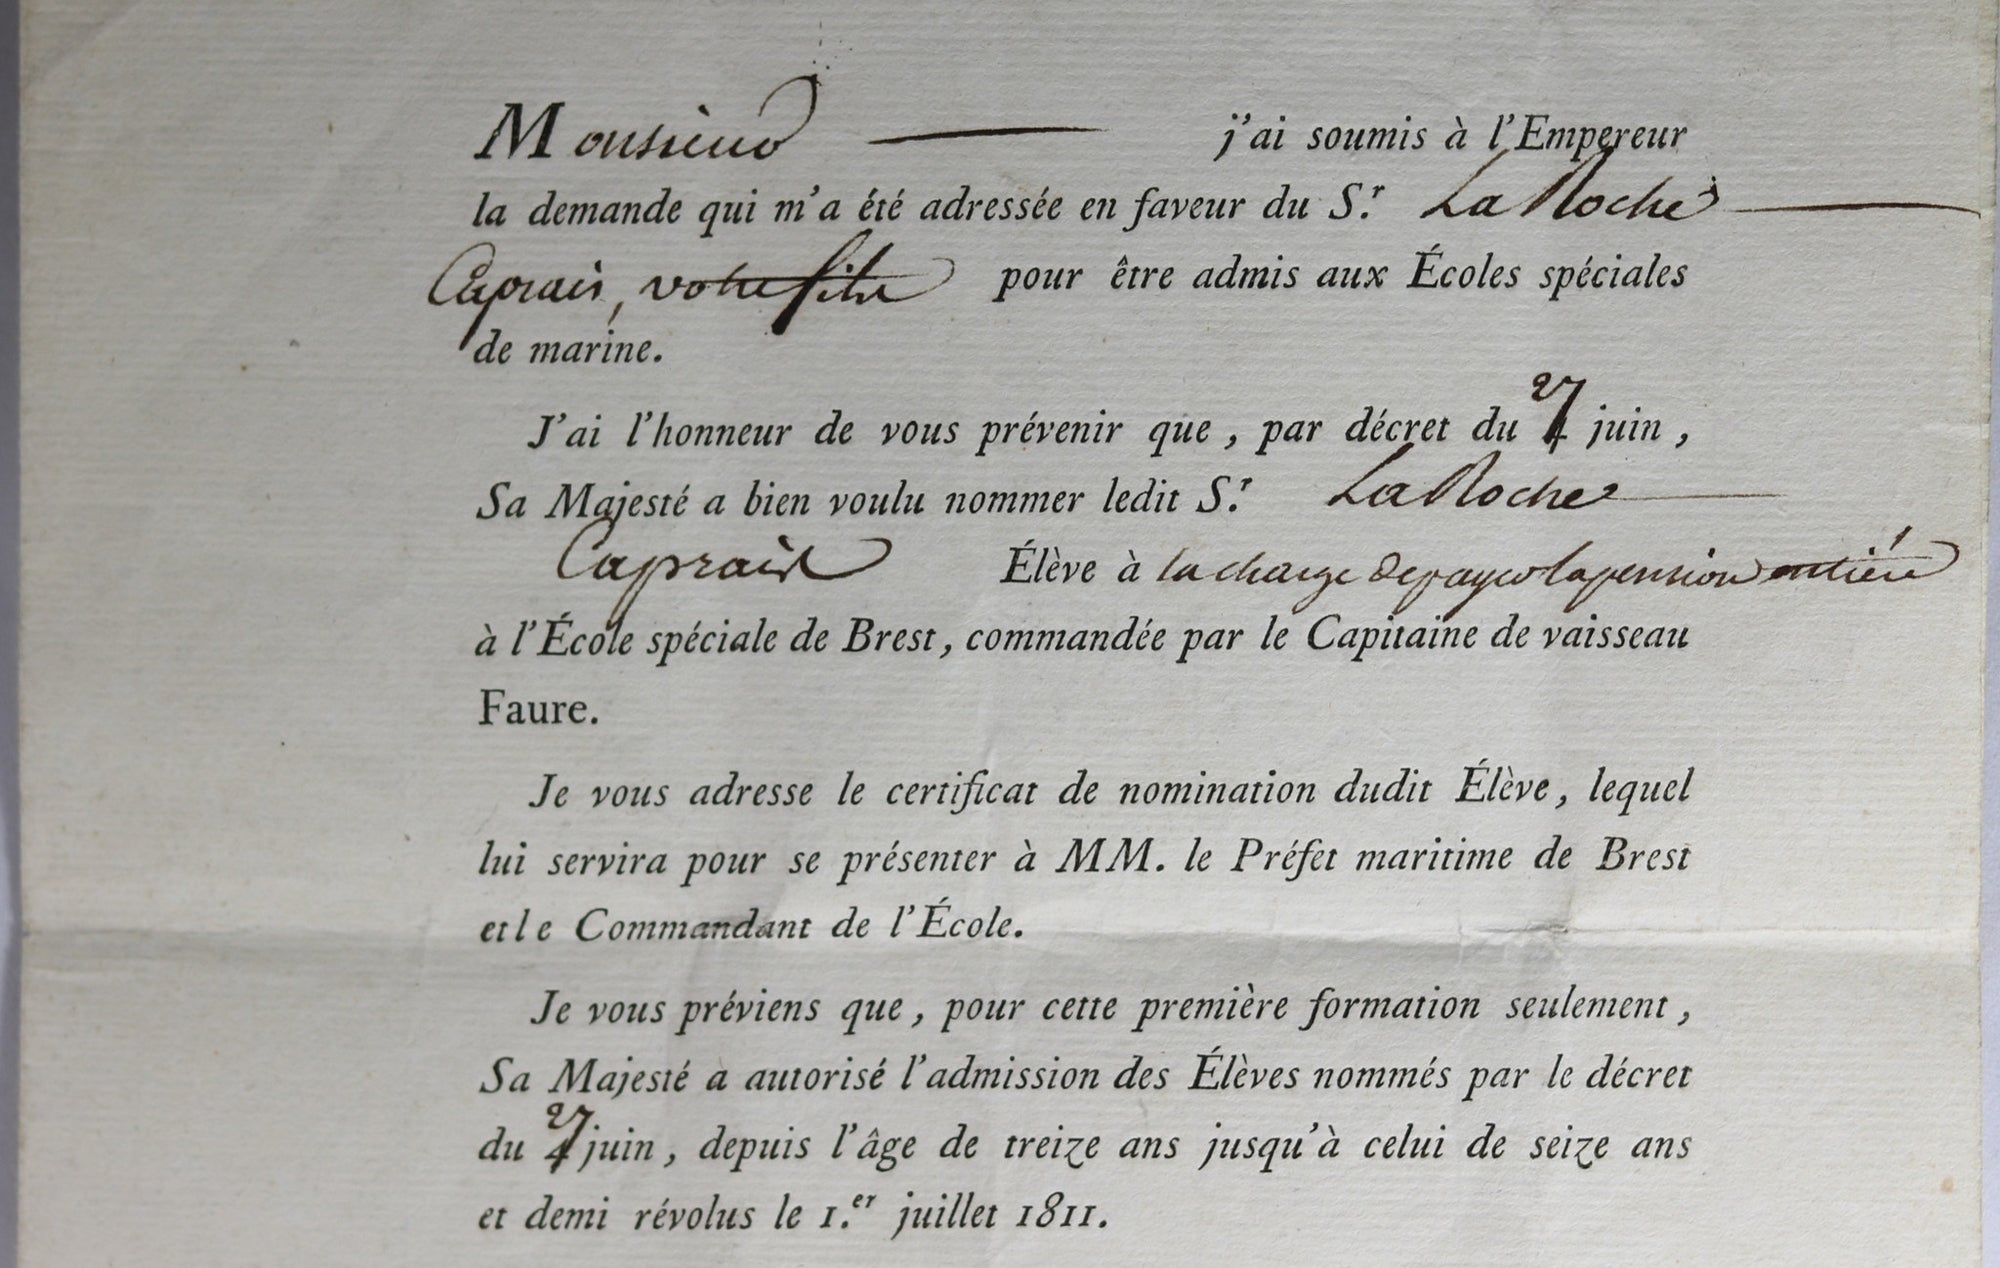 Monsieur j'ai soumis à l'Empereur
la demande qui m'a été adressée en faveur du S.r La Roche
Caprais, votre fils pour être admis aux Écoles spéciales
de marine.
J'ai l'honneur de vous prévenir que, par décret du 27 juin,
Sa Majesté a bien voulu nommer ledit S.r La Roche
Caprais Élève à la charge de payer la pension entière
à l'École spéciale de Brest, commandée par le Capitaine de vaisseau
Faure.
Je vous adresse le certificat de nomination dudit Élève, lequel
lui servira pour se présenter à MM. le Préfet maritime de Brest
et le Commandant de l'École.
Je vous préviens que, pour cette première formation seulement,
Sa Majesté a autorisé l'admission des Élèves nommés par le décret
du 27 juin, depuis l'âge de treize ans jusqu'à celui de seize ans
et demi révolus le 1.er juillet 1811.